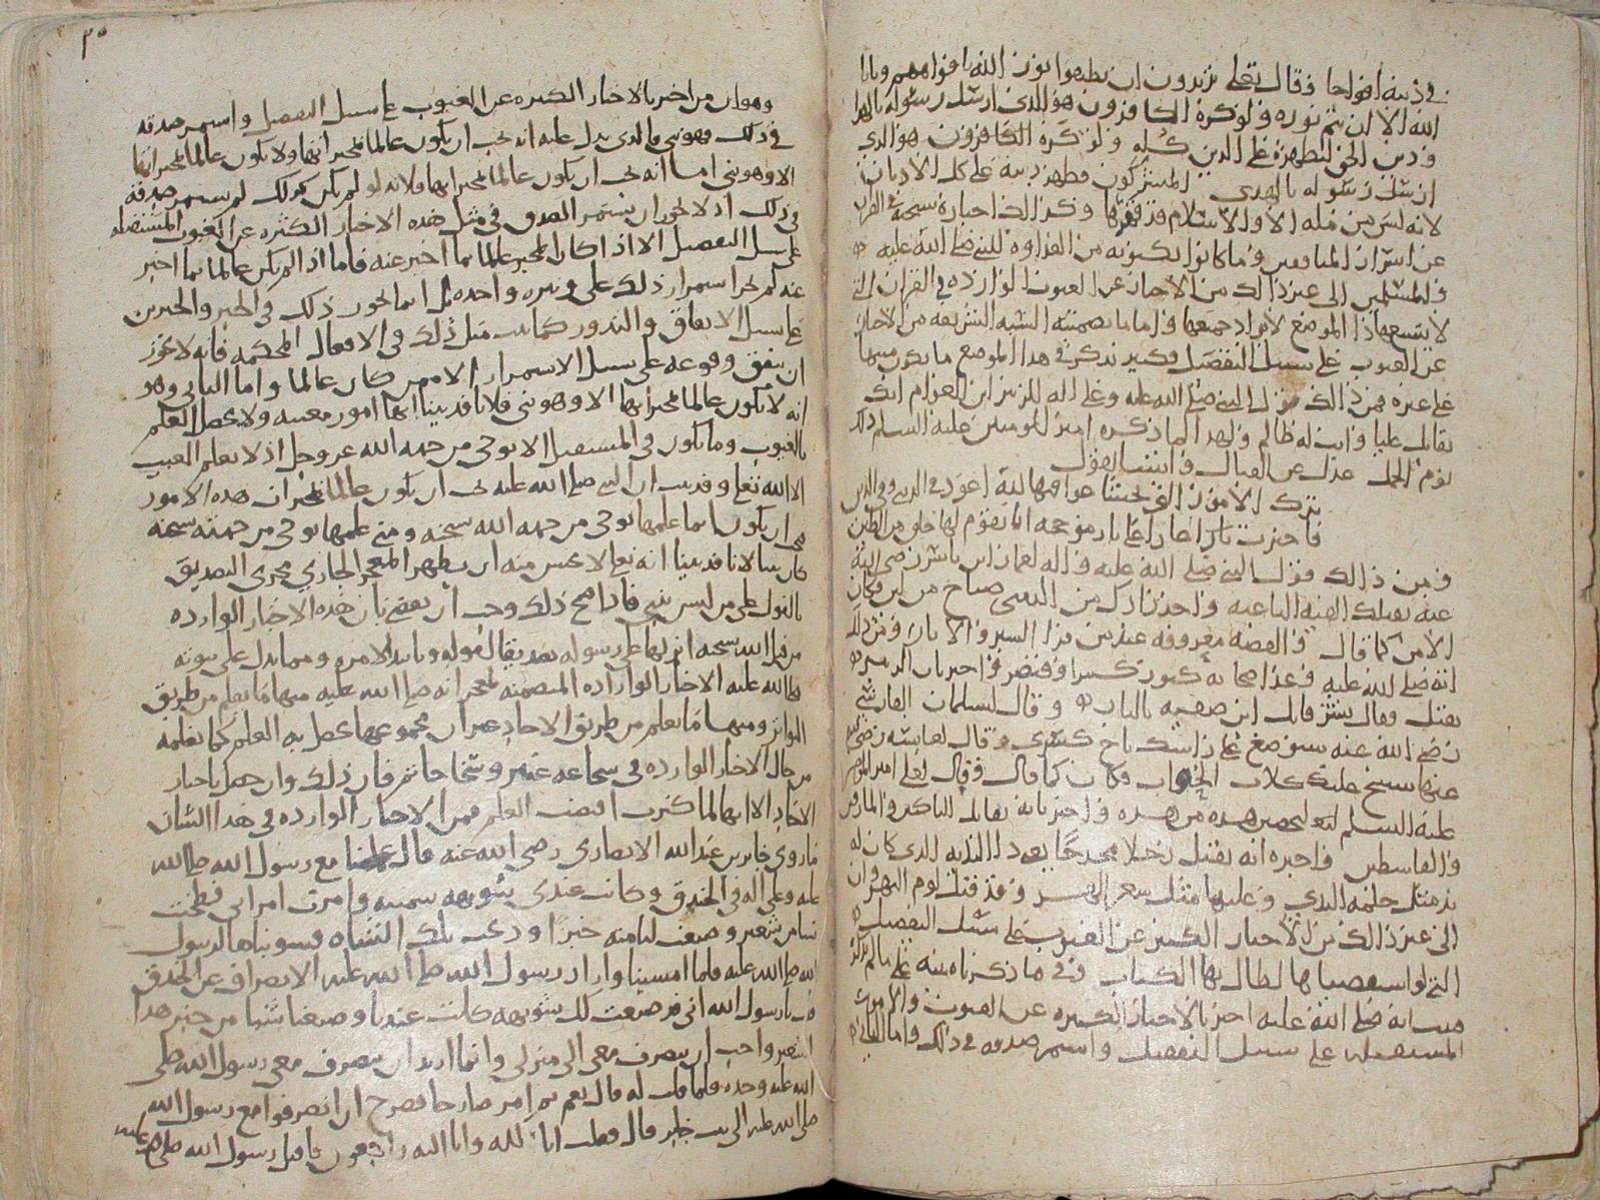 في دينه افواجا فقال تعلى يريدون ان يطفوا نور الله بافواههم ويابا
الله الا ان يتم نوره ولو كره الكافرون هو الذي ارسل رسوله بالهدا
ودين الحق ليظهره على الدين كله ولو كره الكافرون هو الذي
ارسل رسوله بالهدى المشركون فظهر دينه على كل الاديان
لانه ليس من مله الا والاسلام قد وكذلك اخباره سبحنه في القران
عن اسرار المنافقين وما كانوا يكنونه من العداوه للنبي صلى الله عليه
وللمسلمين الى غير ذالك من الاخبار عن الغيوب الوارده في القران التي
لا يتسع هاذا الموضع لايراد جميعها واما ما تضمنته السنه الشريفه من الاخبار
عن الغيوب على سبيل التفصيل فكثير نذكر في هذا الموضع ما يكون منبها
على غيره فمن ذالك قول النبي صلى الله عليه وعلى اله للزبير ابن العوام انك
تقاتل عليا وانت له ظالم ولهذا لما ذكره امير المومنين عليه السلم ذلك
يوم الجمل عدل عن القتال وانشا يقول
ترك الامور التي تخشا عواقبها لله اعود في الدنيا وفي الدين
فاخترت نارا على نار موججه انا يقوم لها خلق من الطين
ومن ذالك قول النبي صلى الله عليه واله لعمار ابن ياسر رضي الله
عنه تقتلك الفيه الباغيه واخر زادك من الدنيا صياح من لبن فكان
الامر كما قال والقصه معروفه عند من قرا السير والاثار ومن ذلك
انه صلى الله عليه وعد اصحابه كنوز كسرا وقيصر واخبر بان
يقتل وقال بشر قاتل ابن صفيه بالنار وقال لسلمان الفارسي
رضي الله عنه سيوضع على راسك تاج كسرى وقال لعايشه رضي الله
عنها ستنبح عليك كلاب الحواب فكان كما قال وقال لعلي امير المومنين
عليه السلم لتخضبن هذه من هذه واخبر بانه يقاتل الناكثين والمارقين
والقاسطين واخبره انه يقتل رجلا مخدجا يعني ذا الثديه الذي كان له
يد مثل حلمه الثدي وعليها مثل شعر الهر وقد قتله يوم النهروان
الى غير ذالك من الاخبار الكثير عن الغيوب على سبيل التفصيل
التي لو استقصيناها لطال بها الكتاب وفي ما ذكرناه منبه على ما لم نذكر
فثبت انه صلى الله عليه اخبر بالاخبار الكثيره عن الغيوب والامور
المستقبله على سبيل التفصيل واستمر صدقه في ذلك واما الثاني
٣٠
وهو ان من اخبر بالاخبار الكثيره عن الغيوب على سبيل التفصيل واستمر صدقه
في ذلك فهو نبي فالذي يدل عليه انه يجب ان يكون عالما بمخبراتها ولا يكون عالما بمخبراتها
الا وهو نبي اما انه يجب ان يكون عالما بمخبراتها فلانه لو لم يكن كذلك لم يستمر صدقه
في ذلك اذ لا يجوز ان يستمر الصدق في مثل هذه الاخبار الكثيره عن الغيوب المستقبله
على سبيل التفصيل الا اذا كان المخبر عالما بما اخبر عنه فاما اذا لم يكن عالما بما اخبر
عنه لم يجز استمرار ذلك على وتيره واحده بل انما يجوز ذلك في الخبر والخبرين
على سبيل الاتفاق والندور كما يثبت مثل ذلك في الافعال المحكمه فانه لا يجوز
ان يتفق وقوعه على سبيل الاستمرار الا ممن كان عالما واما الثاني وهو
انه لا يكون عالما بمخبراتها الا وهو نبي فلانا قد بينا انها امور مغيبه ولا يحصل العلم
بالغيوب وما يكون في المستقبل الا بوحي من جهه الله عز وجل اذ لا يعلم الغيب
الا الله تعلى وقد ثبت ان النبي صلى الله عليه يجب ان يكون عالما بمخبرات هذه الامور
ان يكون انما علمها بوحي من جهه الله سبحنه ومن علمها بوحي من جهته سبحنه
كان نبيا لانا قد بينا انه تعلى لا يحسن منه ان يظهر المعجز الجاري مجرى التصديق
بالقول على من ليس بنبي فاذا صح ذلك وجب ان يقضى بان هذه الاخبار الوارده
من قبل الله سبحنه انزلها على رسوله تصديقا لقوله وتاييدا لامره ومما يدل على نبوته
صلى الله عليه الاخبار الوارده المتضمنه لمعجزاته صلى الله عليه منها ما يعلم من طريق
التواتر ومنها ما يعلم من طريق الاحاد غير ان مجموعها يحصل به العلم كما نعلمه
من حال الاخبار الوارده في شجاعه عنتر وسخا حاتم فان ذلك وان حصل باخبار
الاحاد الا انها لما كثرت اقتضت العلم فمن الاخبار الوارده في هذا الشان
ما روي جابر بن عبدالله الانصاري رضي الله عنه قال عملنا مع رسول الله صلى الله
عليه وعلى اله في الخندق وكانت عندي شويهه سمينه وامرت امراتي فطحنت
شيا من شعير وصنعت لنا منه خبزا وذبحت تلك الشاه فشويناها لرسول
الله صلى الله عليه فلما امسينا واراد رسول الله صلى الله عليه الانصراف عن الخندق
قلت يا رسول الله اني قد صنعت لك شويهه كانت عندنا وصنعنا شيا من خبز هذا
الشعير واحب ان تنصرف معي الى منزلي وانما اريد ان ينصرف معي رسول الله صلى
الله عليه وحده فلما قلت له قال نعم ثم امر صارخا فصرخ ان انصرفوا مع رسول الله
صلى الله عليه الى بيت جابر قال فقلت انا لله وانا اليه راجعون فاقبل رسول الله صلى الله عليه